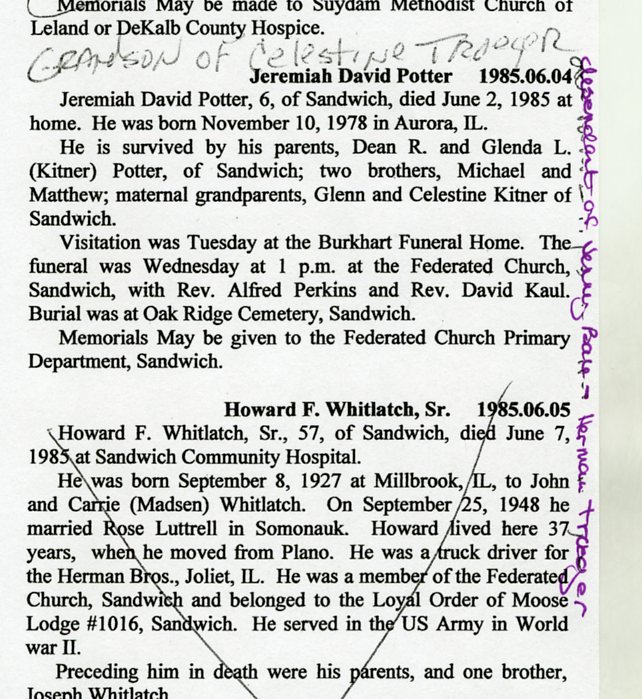 Memorials May be made to Suydam Methodist Church of
Leland or DeKalb County Hospice.
GRANDSON OF Celestine TROEGER
Jeremiah David Potter 1985.06.04
Jeremiah David Potter, 6, of Sandwich, died June 2, 1985 at
home. He was born November 10, 1978 in Aurora, IL.
He is survived by his parents, Dean R. and Glenda L.
(Kitner) Potter, of Sandwich; two brothers, Michael and
Matthew; maternal grandparents, Glenn and Celestine Kitner of
Sandwich.
Visitation was Tuesday at the Burkhart Funeral Home. The
funeral was Wednesday at 1 p.m. at the Federated Church,
Sandwich, with Rev. Alfred Perkins and Rev. David Kaul.
Burial was at Oak Ridge Cemetery, Sandwich.
Memorials May be given to the Federated Church Primary
Department, Sandwich.
descendant of Herman Troeger
Howard F. Whitlatch, Sr. 1985.06.05
Howard F. Whitlatch, Sr., 57, of Sandwich, died June 7,
1985 at Sandwich Community Hospital.
He was born September 8, 1927 at Millbrook, IL, to John
and Carrie (Madsen) Whitlatch. On September 25, 1948 he
married Rose Luttrell in Somonauk. Howard lived here 37
years, when he moved from Plano. He was a truck driver for
the Herman Bros., Joliet, IL. He was a member of the Federated
Church, Sandwich and belonged to the Loyal Order of Moose
Lodge #1016, Sandwich. He served in the US Army in World
war II.
Preceding him in death were his parents, and one brother,
Joseph Whitlatch